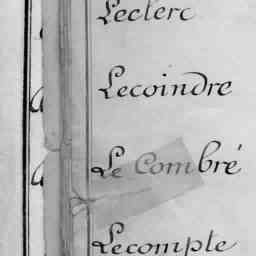 Leclerc
Lecoindre
Le Combré
Lecompte